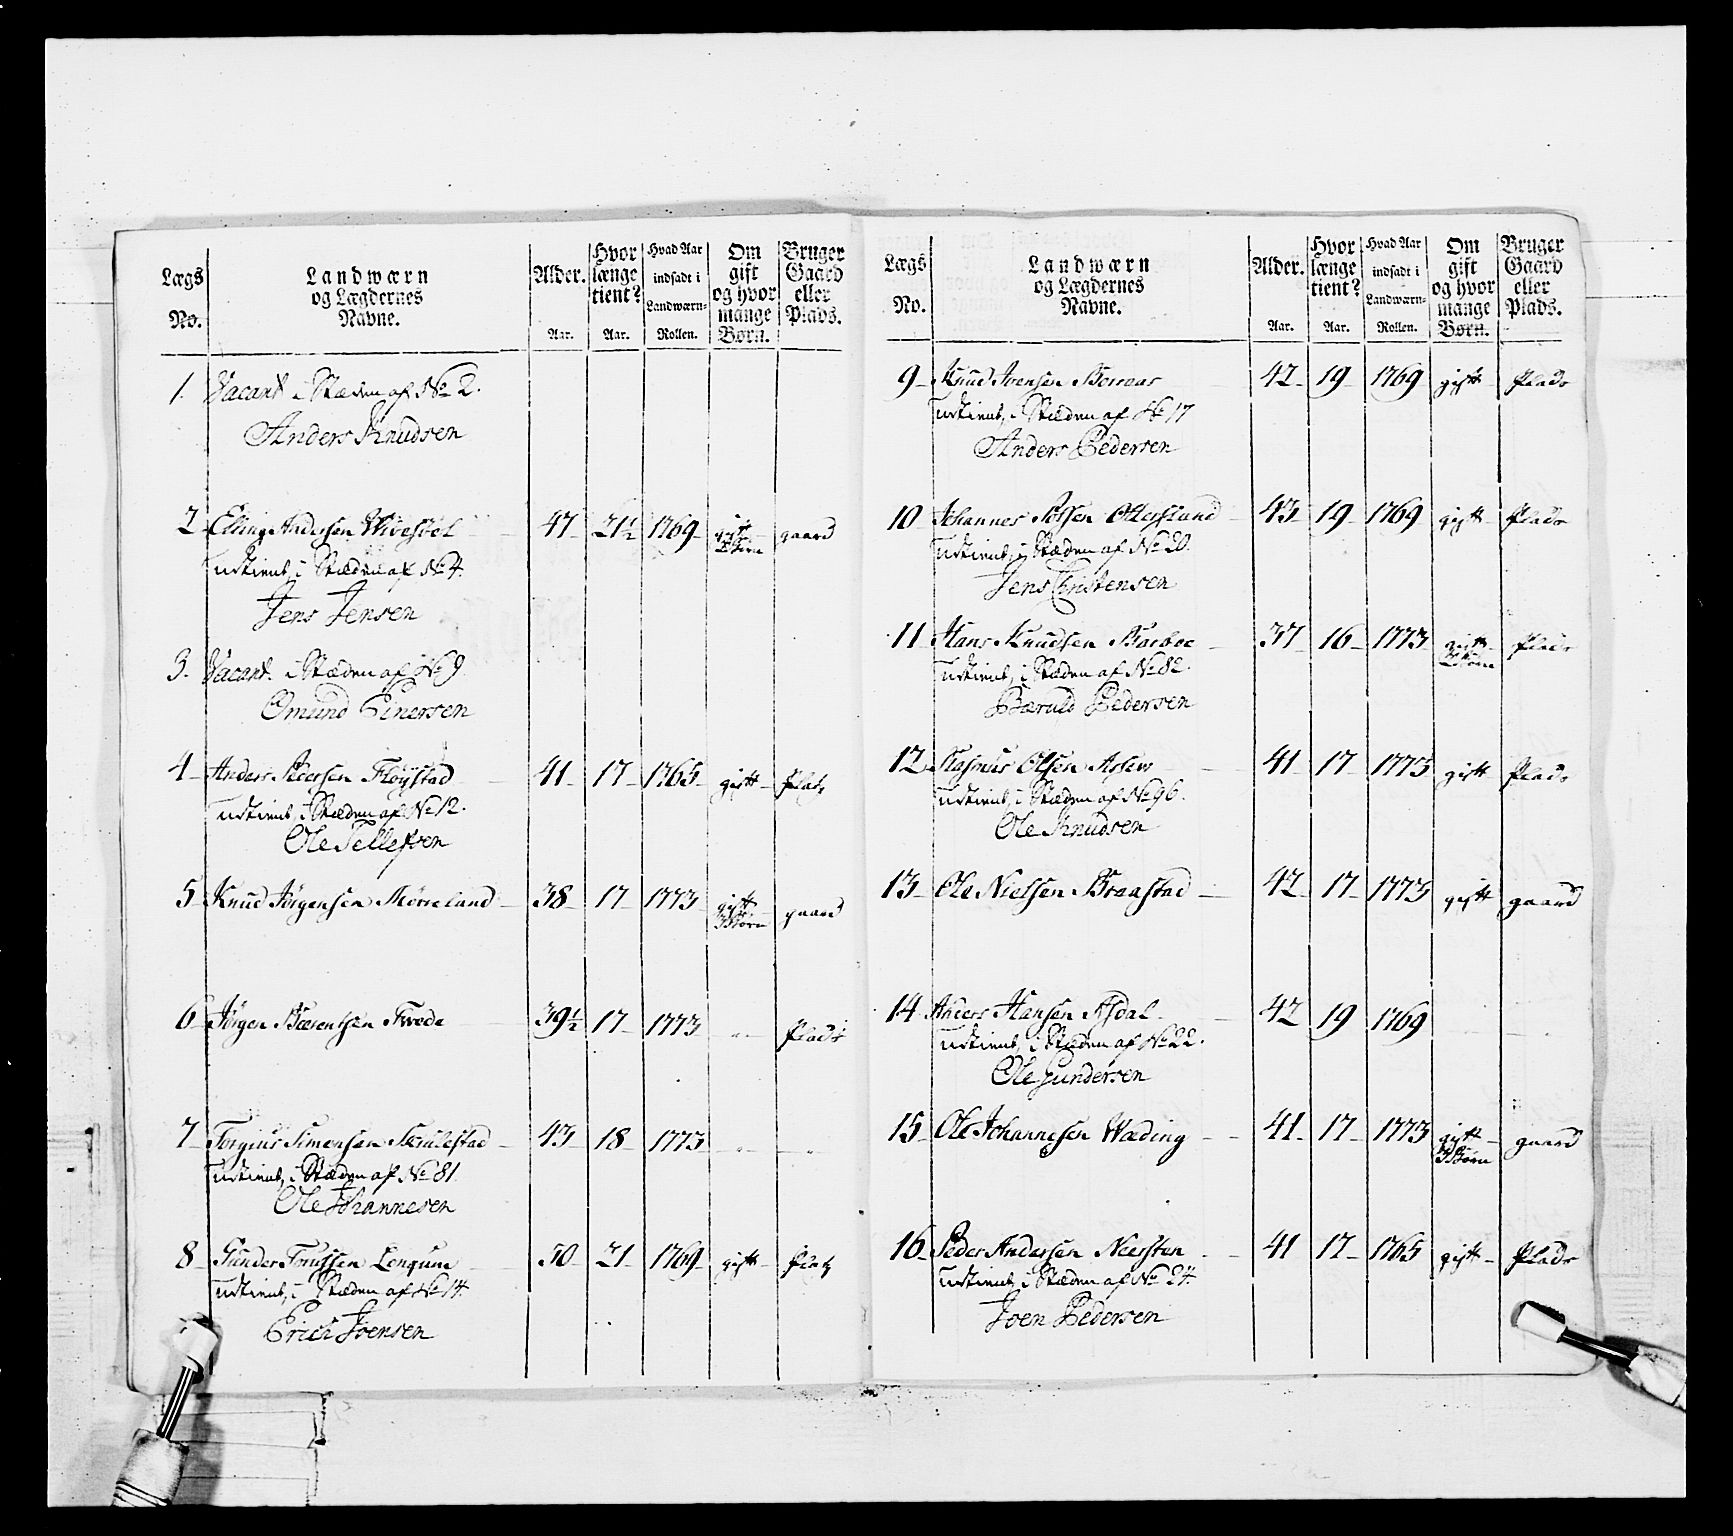 Lægs No. | Landwærn og Lægdernes Navne. | Alder. Aar. | Hvor længe tient? Aar. | Hvad Aar indsadt i Landwærn-Rollen. | Om gift og hvor mange Børn. | Bruger Gaard eller Plads.
1. Vacant i Stæden af No 2.
Anders Knudsen
2 Elling Andersen 47 21½ 1769 gift 2 Børn gaard
udtient, i Stæden af No 4.
Jens Jensen
3. Vacant. i Stæden af No 9
Omund Einersen
4 Anders Pedersen Fløystad 41 17 1765 gift Plads
udtient, i Stæden af No 12.
Ole Tellefsen
5 Knud Jørgensen Møreland 38 17 1773 gift 3 Børn gaard
6 Jørgen Bærentsen Tvede 39½ 17 1773 " Plads
7 Torgius Simonsen Skulestad 43 18 1773 " "
udtient, i Stæden af No 81.
Ole Johannesen
8 Gunder Longum 50 21 1769 gift Plads
udtient, i Stæden af No 14.
Erich Joensen
Lægs No. | Landwærn og Lægdernes Navne. | Alder. Aar. | Hvor længe tient? Aar. | Hvad Aar indsadt i Landwærn-Rollen. | Om gift og hvor mange Børn. | Bruger Gaard eller Plads.
9 Knud Ivensen 42 19 1769 gift Plads
udtient, i Stæden af No 17
Anders Pedersen
10 Johannes Olsen 43 19 1769 gift Plads
udtient, i Stæden af No 20.
Jens Christensen
11 Hans Knudsen Barboe 37 16 1773 gift 2 Børn Plads
udtient, i Stæden af No 82.
Baruld Pedersen
12 Rasmus Olsen 41 17 1773 gift Plads
udtient, i Stæden af No 96.
Ole Knudsen
13 Ole Nielsen Braastad 42 17 1773 gift gaard
14 Anders Hansen Asdal 42 19 1769
udtient, i Stæden af No 22.
Ole Gundersen
15 Ole Johannesen Wæding 41 17 1773 gift 3 Børn gaard
16 Peder Andersen Neersten 41 17 1765 gift Plads
udtient, i Stæden af No 24.
Joen Pedersen